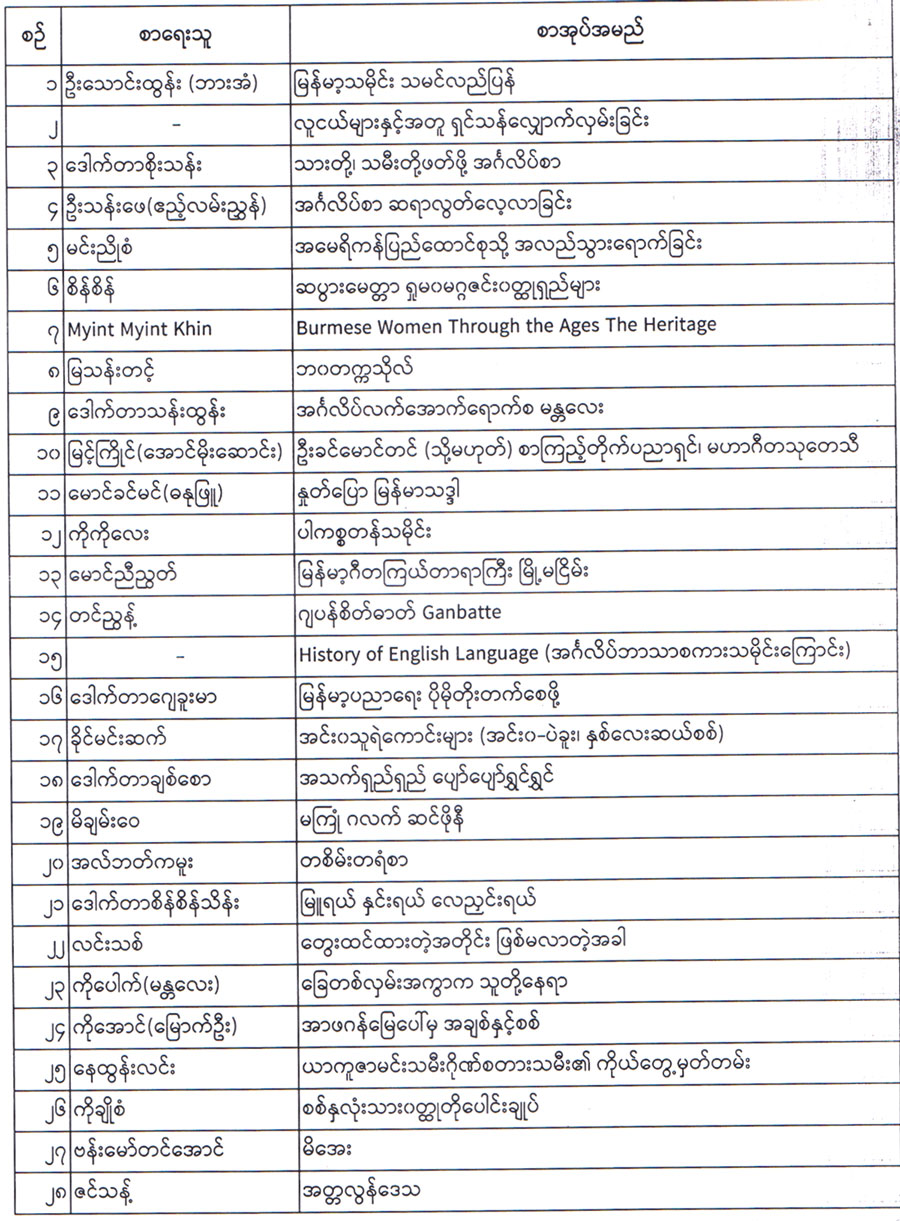 စဉ် စာရေးသူ စာအုပ်အမည်
၁ ဦးသောင်းထွန်း (ဘားအံ) မြန်မာ့သမိုင်း သမင်လည်ပြန်
၂ – လူငယ်များနှင့်အတူ ရှင်သန်လျှောက်လှမ်းခြင်း
၃ ဒေါက်တာစိုးသန်း သားတို့၊ သမီးတို့ဖတ်ဖို့ အင်္ဂလိပ်စာ
၄ ဦးသန်းဖေ(ဧည့်လမ်းညွှန်) အင်္ဂလိပ်စာ ဆရာလွတ်လေ့လာခြင်း
၅ မင်းညိုစံ အမေရိကန်ပြည်ထောင်စုသို့ အလည်သွားရောက်ခြင်း
၆ စိန်စိန် ဆပွားမေတ္တာ ရှုမ၀မဂ္ဂဇင်း၀တ္ထုရှည်များ
၇ Myint Myint Khin Burmese Women Through the Ages The Heritage
၈ မြသန်းတင့် ဘ၀တက္ကသိုလ်
၉ ဒေါက်တာသန်းထွန်း အင်္ဂလိပ်လက်အောက်ရောက်စ မန္တလေး
၁၀ မြင့်ကြိုင်(အောင်မိုးဆောင်း) ဦးခင်မောင်တင် (သို့မဟုတ်) စာကြည့်တိုက်ပညာရှင်၊ မဟာဂီတသုတေသီ
၁၁ မောင်ခင်မင်(ဓနုဖြူ) နှုတ်ပြော မြန်မာသဒ္ဒါ
၁၂ ကိုကိုလေး ပါကစ္စတန်သမိုင်း
၁၃ မောင်ညီညွတ် မြန်မာ့ဂီတကြယ်တာရာကြီး မြို့မငြိမ်း
၁၄ တင်ညွန့် ဂျပန်စိတ်ဓာတ် Ganbatte
၁၅ – History of English Language (အင်္ဂလိပ်ဘာသာစကားသမိုင်းကြောင်း)
၁၆ ဒေါက်တာဂျေခူးမာ မြန်မာ့ပညာရေး ပိုမိုတိုးတက်စေဖို့
၁၇ ခိုင်မင်းဆက် အင်း၀သူရဲကောင်းများ (အင်း၀–ပဲခူး၊ နှစ်လေးဆယ်စစ်)
၁၈ ဒေါက်တာချစ်စော အသက်ရှည်ရှည် ပျော်ပျော်ရွှင်ရွှင်
၁၉ မိချမ်းဝေ မကြုံ ဂလက် ဆင်ဖိုနီ
၂၀ အလ်ဘတ်ကမူး တစိမ်းတရံစာ
၂၁ ဒေါက်တာစိန်စိန်သိန်း မြူရယ် နှင်းရယ် လေညှင်းရယ်
၂၂ လင်းသစ် တွေးထင်ထားတဲ့အတိုင်း ဖြစ်မလာတဲ့အခါ
၂၃ ကိုပေါက်(မန္တလေး) ခြေတစ်လှမ်းအကွာက သူတို့နေရာ
၂၄ ကိုအောင်(မြောက်ဦး) အာဖဂန်မြေပေါ်မှ အချစ်နှင့်စစ်
၂၅ နေထွန်းလင်း ယာကူဇာမင်းသမီးဂိုဏ်စတားသမီး၏ ကိုယ်တွေ့မှတ်တမ်း
၂၆ ကိုချိုစံ စစ်နှလုံးသား၀တ္ထုတိုပေါင်းချုပ်
၂၇ ဗန်းမော်တင်အောင် မိအေး
၂၈ ဇင်သန့် အတ္တလွန်ဒေသ